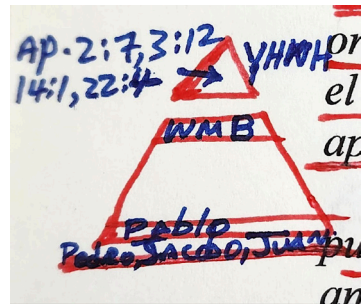 Ap. 2:7, 3:12
14:1, 22:4
YHWH
WMB
Pablo
Pedro, JACOBO, JUAN
el